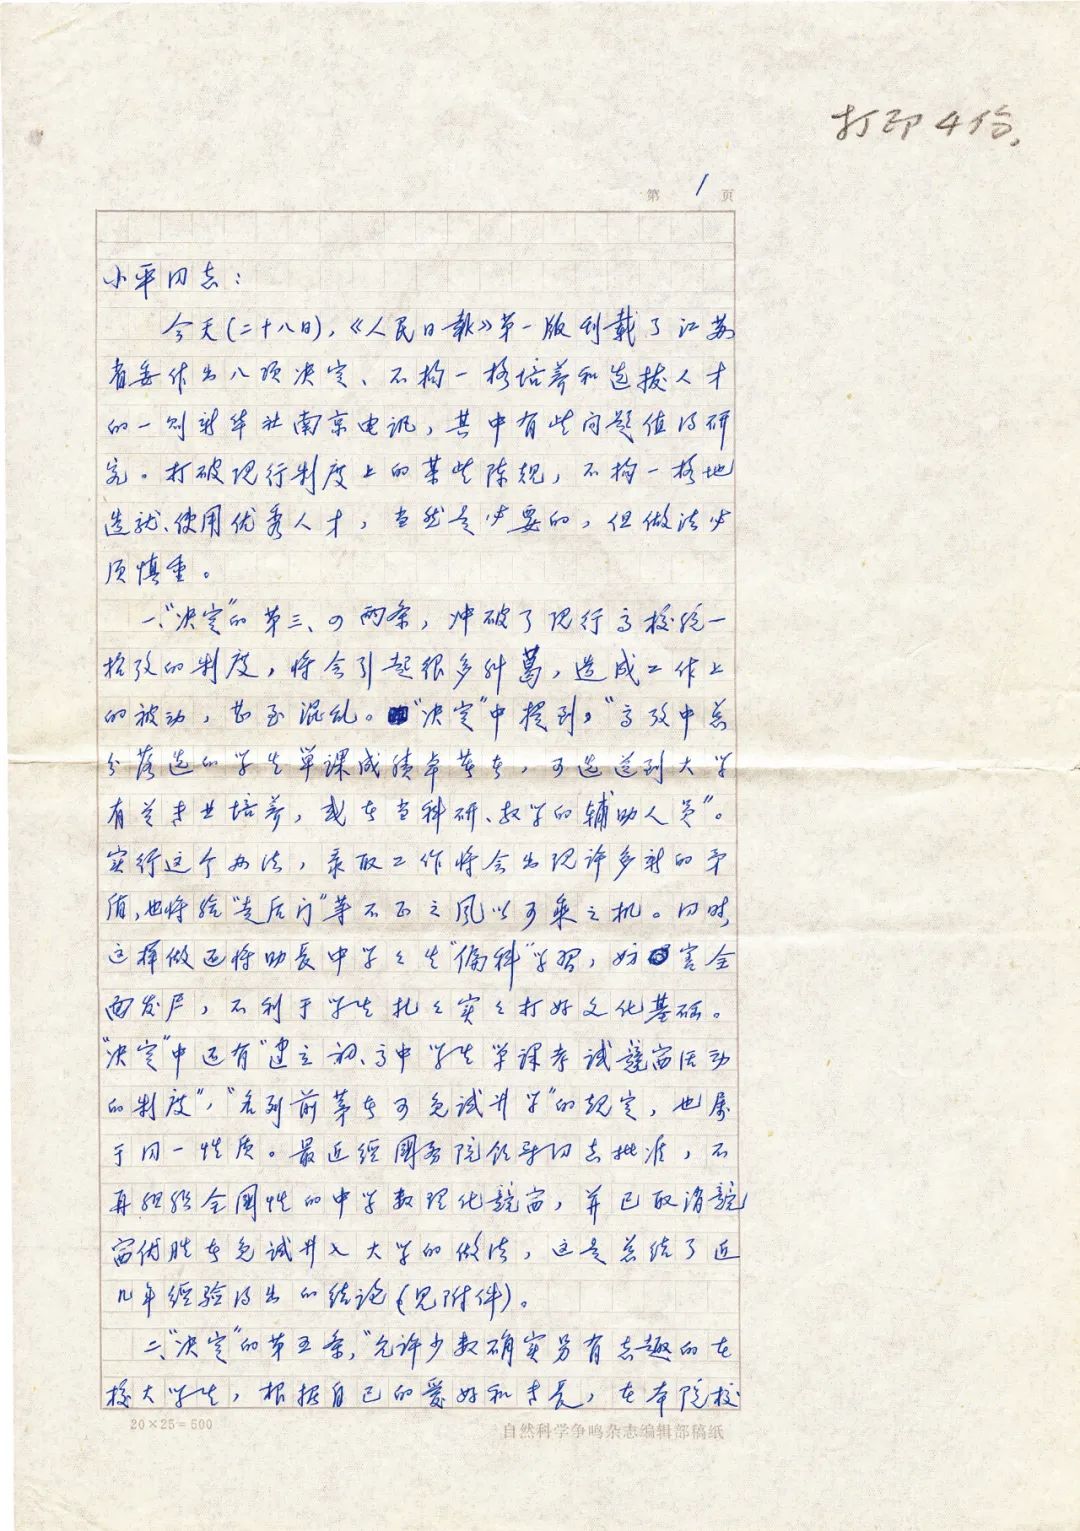 打印4份。
第 1 页
小平同志：
今天(二十八日)，《人民日报》第一版刊载了江苏
省委作出八项决定、不拘一格培养和选拔人才
的一则新华社南京电讯，其中有些问题值得研
究。打破现行制度上的某些陈规，不拘一格地
造就、使用优秀人才，当然是必要的，但做法必
须慎重。
一、“决定”的第三、四两条，冲破了现行高校统一
招考的制度，将会引起很多纠葛，造成工作上
的被动，甚至混乱。“决定”中提到，“高考中总
分落选的学生单课成绩卓著者，可选送到大学
有关专业培养，或者当科研、教学的辅助人员”。
实行这个办法，录取工作将会出现许多新的矛
盾，也将给“走后门”等不正之风以可乘之机。同时，
这样做还将助长中学々生“偏科”学习，妨害全
面发展，不利于学生扎々实々打好文化基础。
“决定”中还有“建立初、高中学生单课考试競赛活动
的制度”，“名列前茅者可免试升学”的规定，也属
于同一性质。最近经國务院领导同志批准，不
再组织全國性的中学数理化競赛，并已取消競
赛优胜者免试升入大学的做法，这是总结了近
几年经验得出的结论(见附件)。
二、“决定”的第五条，“允许少数确实另有志趣的在
校大学生，根据自己的爱好和专长，在本院校
20×25=500
自然科学争鸣杂志编辑部稿纸